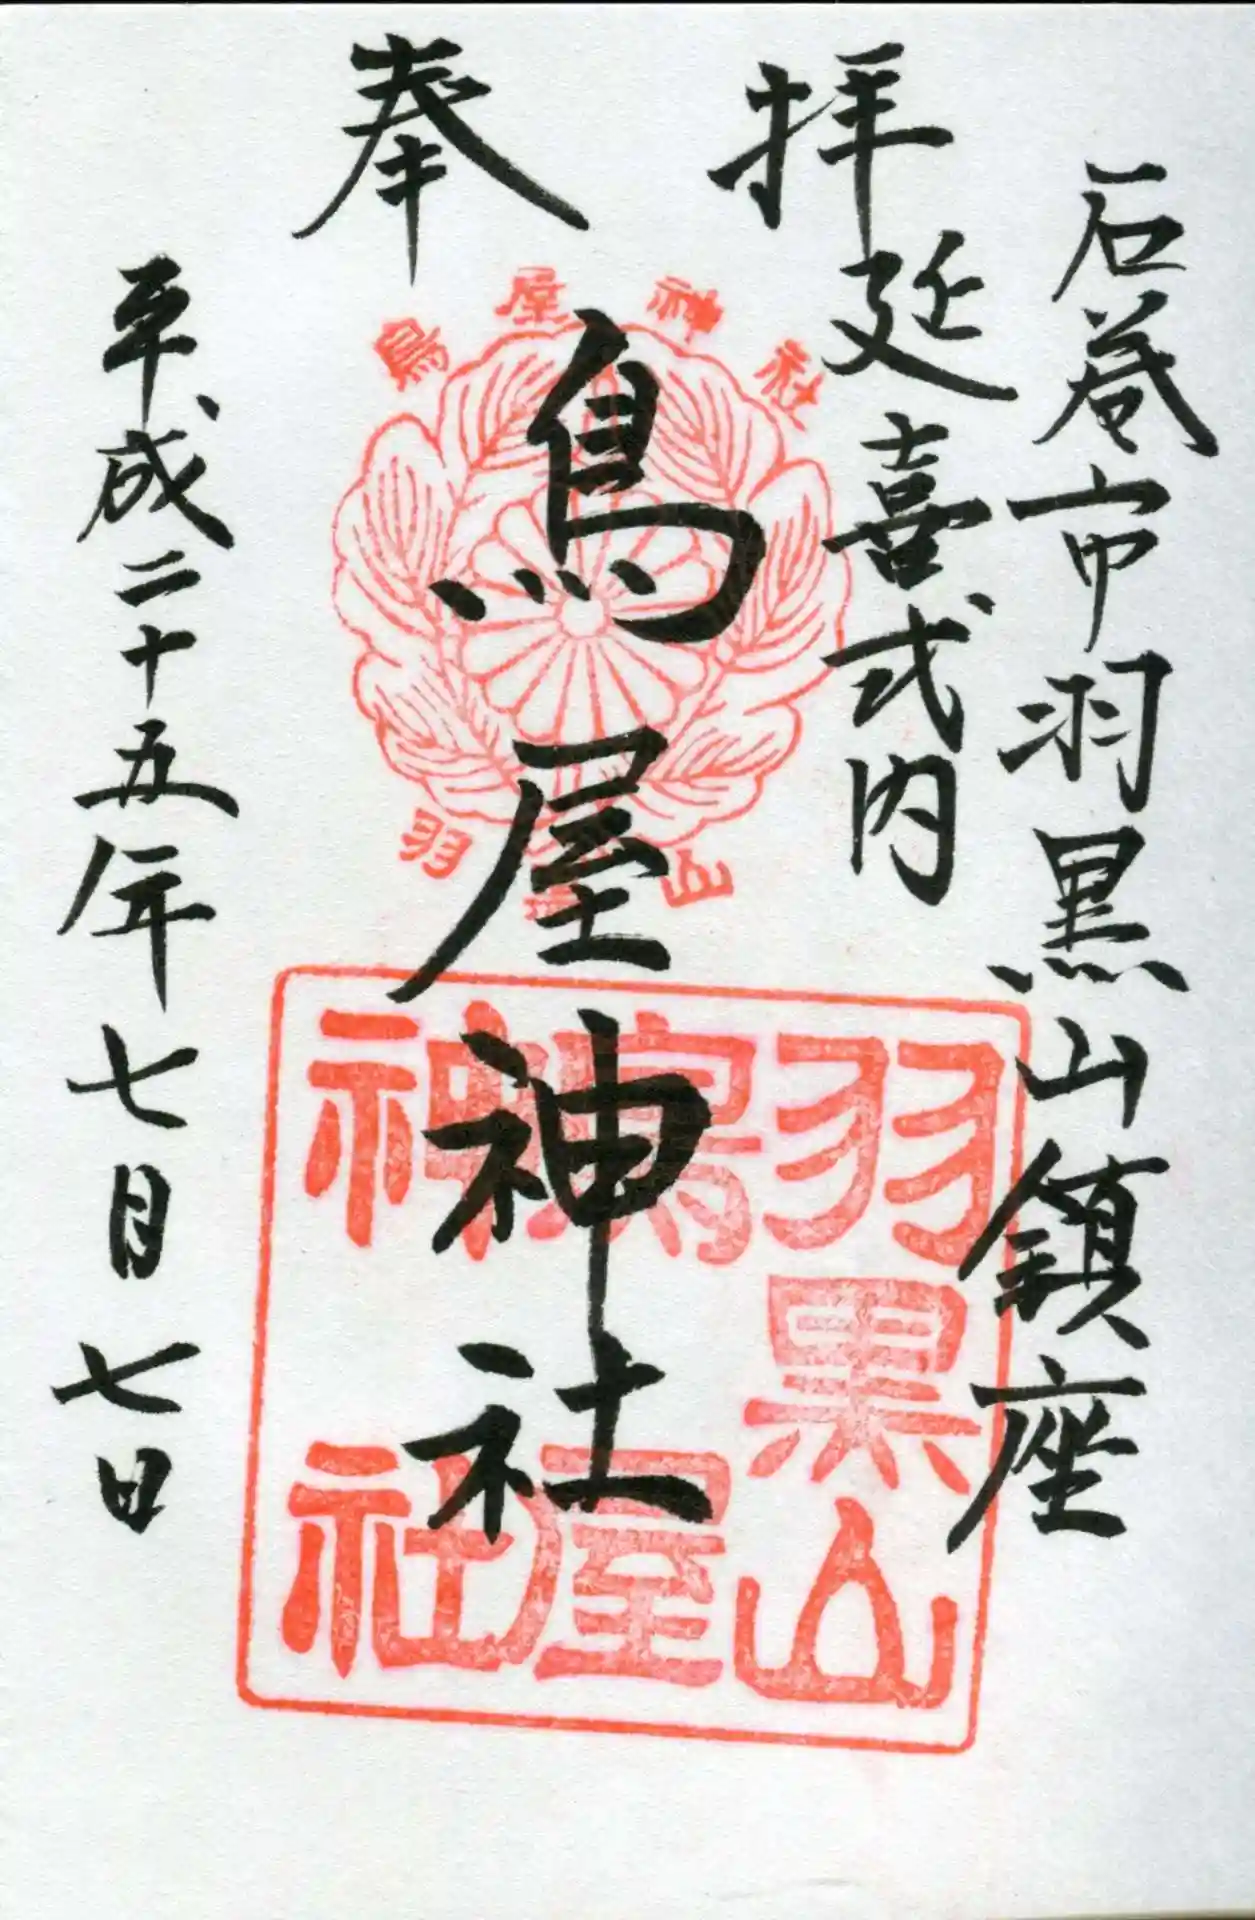 奉拝
石巻市羽黒山鎮座
延喜式内
鳥屋神社
平成二十五年七月七日
鳥屋神社
羽黒山
羽黒山
鳥屋
神社